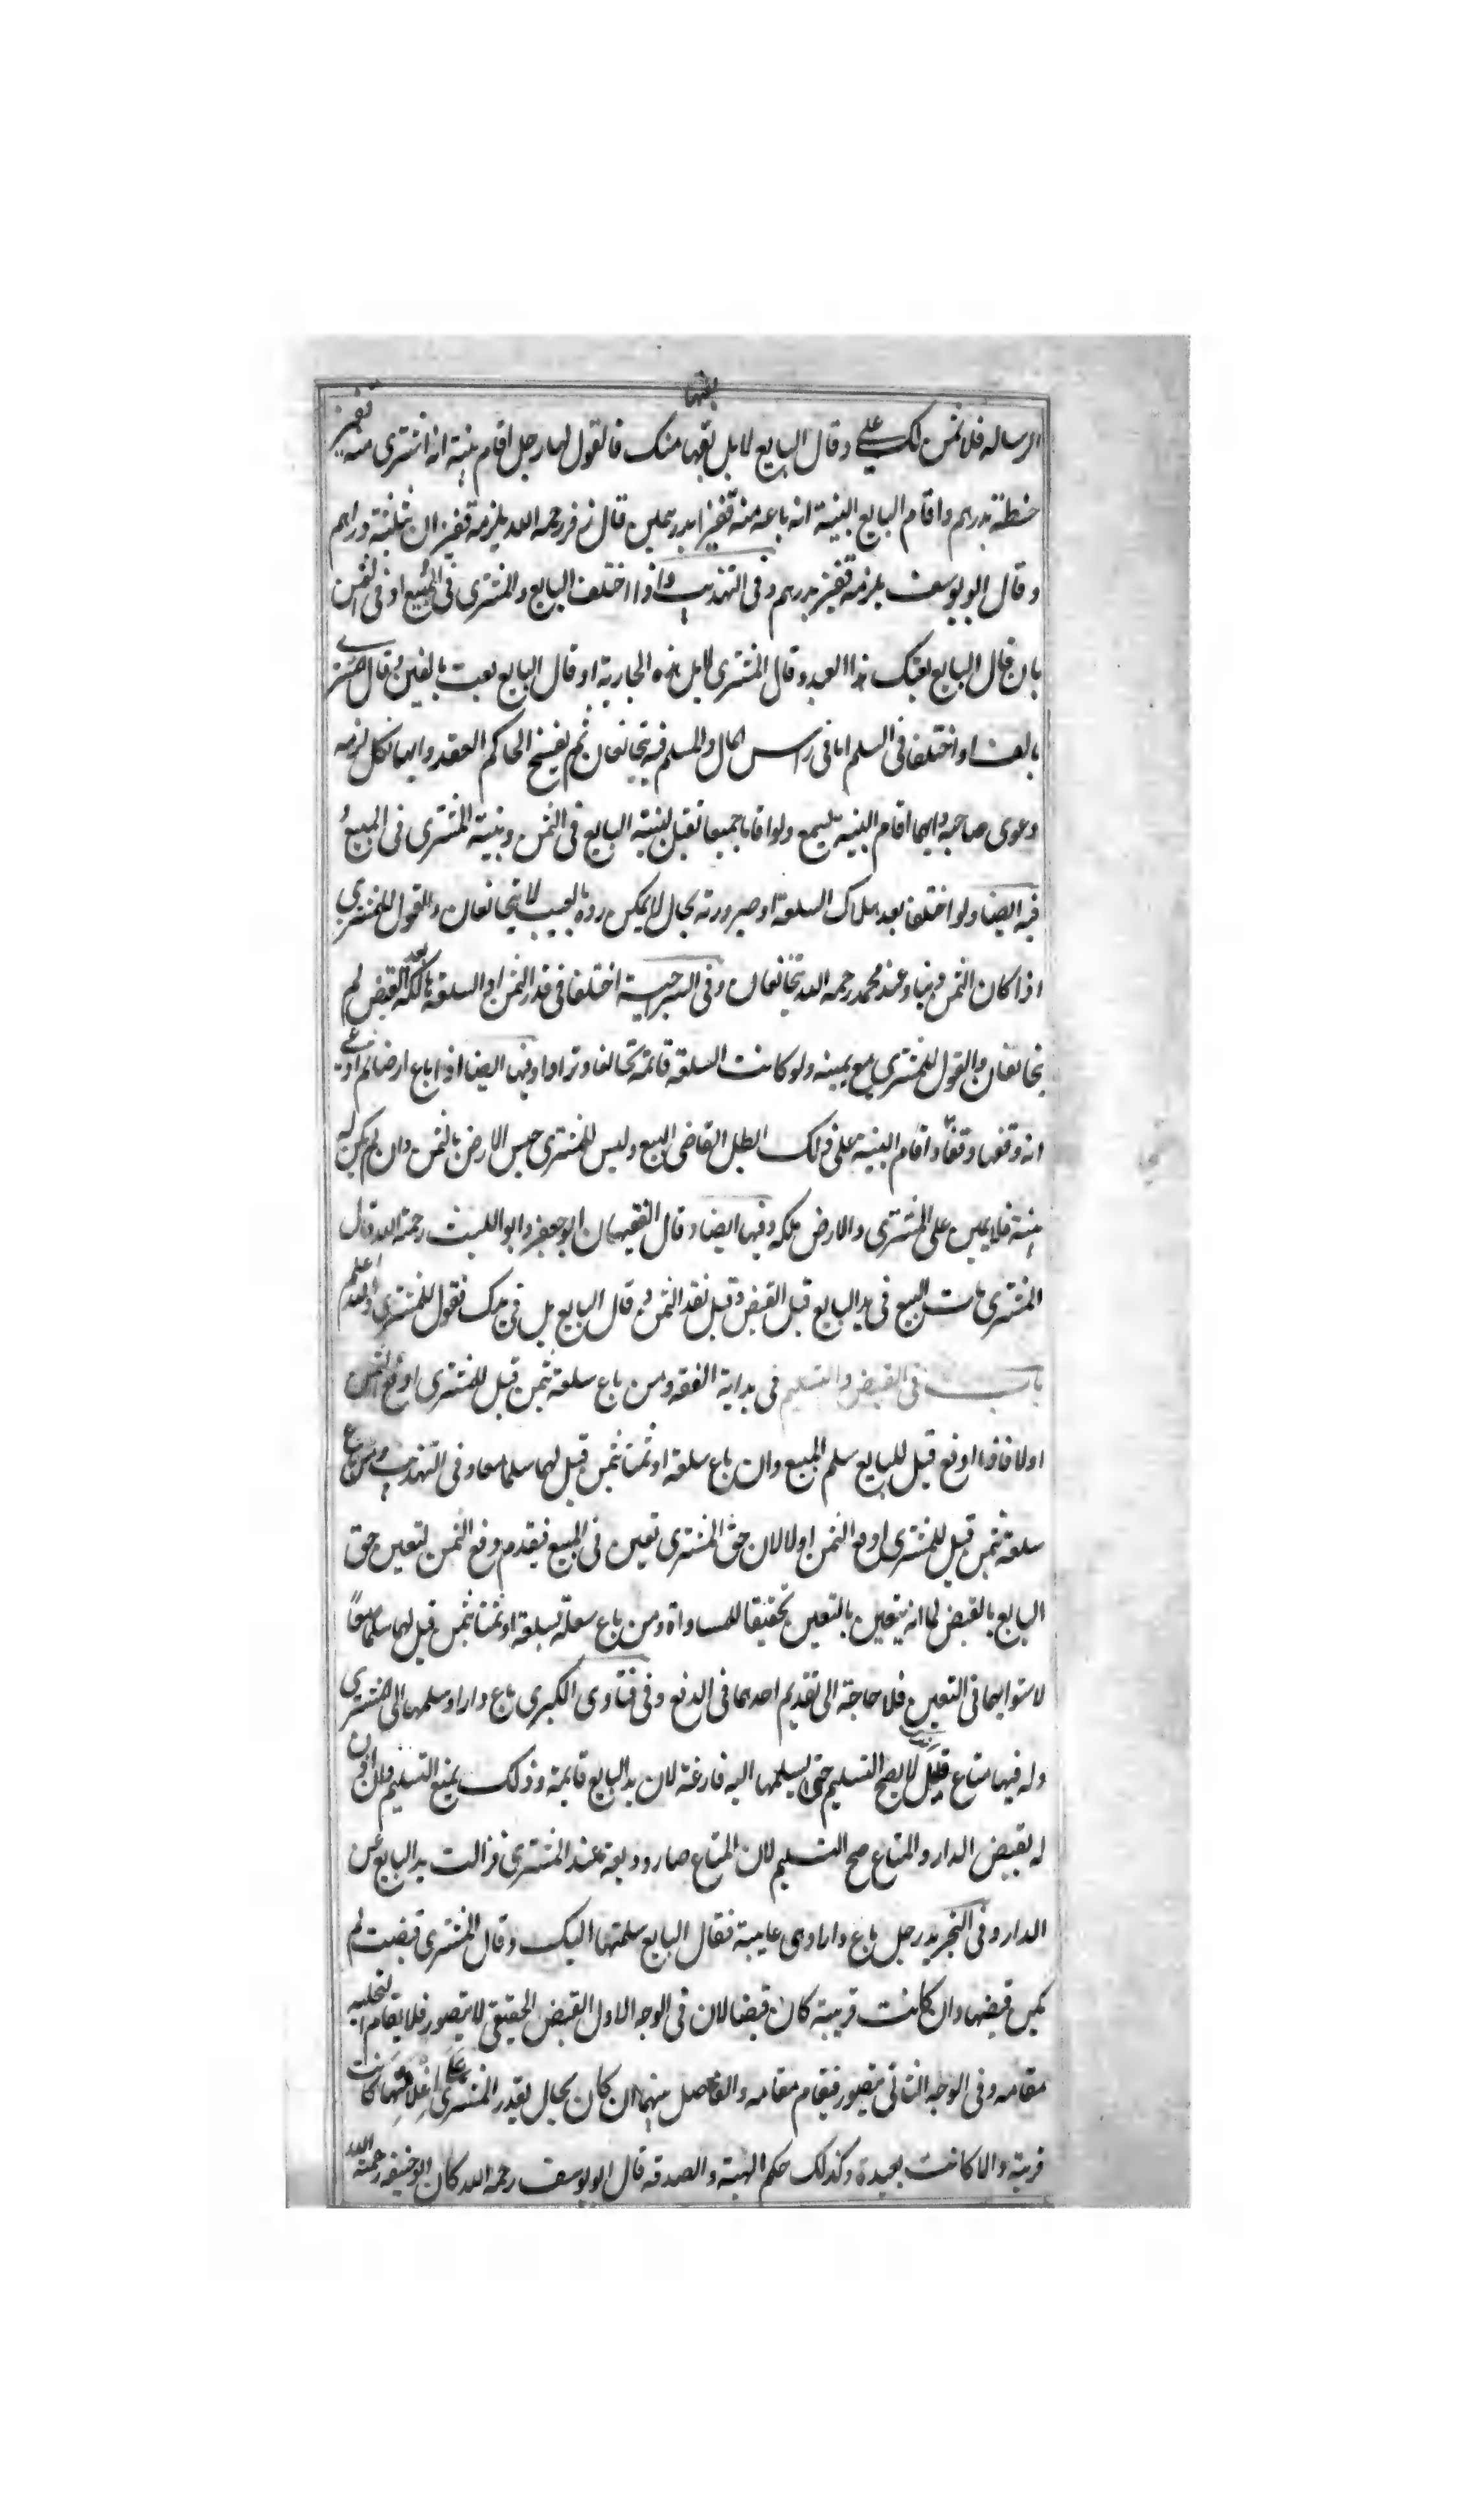 بعتها
الرساله فلا ثمن لك علي وقال البايع لا بل بعتها منك فالقول لها رجل اقام بينة انه اشترى منه قفيز
حنطة بدرهم واقام البايع البينة انه باعه منه قفيزا بدرهمين قال زفر رحمه الله يلزمه قفيزان بثلثة دراهم
وقال ابو يوسف يلزمه قفيز بدرهم وفى التهذيب واذا اختلف البايع والمشترى فى المبيع او فى الثمن
بان قال البايع بعتك هذا العبد وقال المشترى لا بل هذه الجارية او قال البايع بعت بالفين وقال المشترى
بالف او اختلفا فى السلم اما فى راس المال والمسلم فيه يتحالفان ثم يفسخ الحاكم العقد وايهما نكل لزمه
دعوى صاحبه وايهما اقام البينة يسمع ولو اقاما جميعا تقبل بينة البايع فى الثمن وبينة المشترى فى المبيع
فيه ايضا ولو اختلفا بعد هلاك السلعة او صيرورته بحال لا يمكن رده بالعيب لا يتحالفان والقول للمشترى
اذا كان الثمن دينا وعند محمد رحمه الله يتحالفان وفى السراجية اختلفا فى قدر الثمن او السلعة هالكة بعد القبض لم
يتحالفان والقول للمشترى مع يمينه ولو كانت السلعة قائمة تحالفا وترادا وفيها ايضا اذا باع ارضا ثم ادعى
انه وقفها وقفا واقام البينة على ذلك ابطل القاضى البيع وليس للمشترى حبس الارض بالثمن وان لم يكن له
بينة فلا يمين على المشترى والارض ملكه وفيها ايضا وقال الفقيهان ابو جعفر وابو الليث رحمة الله قال
المشترى مات المبيع فى يد البايع قبل القبض وقبل نقد الثمن وقال البايع بل فى يدك فقول للمشترى والله اعلم
باب فى القبض والتسليم فى بداية الفقه ومن باع سلعة بثمن قيل للمشترى ادفع الثمن
اولا فاذا ادفع قيل للبايع سلم المبيع وان باع سلعة او ثمنا بثمن قيل لهما سلما معا وفى التهذيب ومن باع
سلعة بثمن قيل للمشترى ادفع الثمن اولا لان حق المشترى تعين فى المبيع فيقدم دفع الثمن لتعين حق
البايع بالقبض لما انه يتعين بالتعين تحقيقا للمساواة ومن باع سعلة بسلعة او ثمنا بثمن قيل لهما سلما معا
لاستوائهما فى التعين فلا حاجة الى تقديم احدهما فى الدفع وفى فتاوى الكبرى باع دارا وسلمها الى المشترى
وله فيها متاع قليل لا يصح التسليم حتى يسلمها اليه فارغة لان يد البايع قايمة وذلك يمنع التسليم فان اذن
له بقبض الدار والمتاع صح التسليم لان المتاع صار وديعة عند المشترى فزالت يد البايع عن
الدار وفى التجريد رجل باع دارا وهى غايبة فقال البايع سلمتها اليك وقال المشترى قبضت لم
يكن قبضها وان كانت قريبة كان قبضا لان فى الوجه الاول القبض الحقيقى لا يتصور فلا يقام التخلية
مقامه وفى الوجه الثانى يتصور فيقام مقامه والفاصل بينهما ان كان بحال يقدر المشترى على اغلاقها كانت
قريبة والا كانت بعيدة وكذلك حكم الهبة والصدقه قال ابو يوسف رحمه الله كان ابو حنيفه رحمة الله